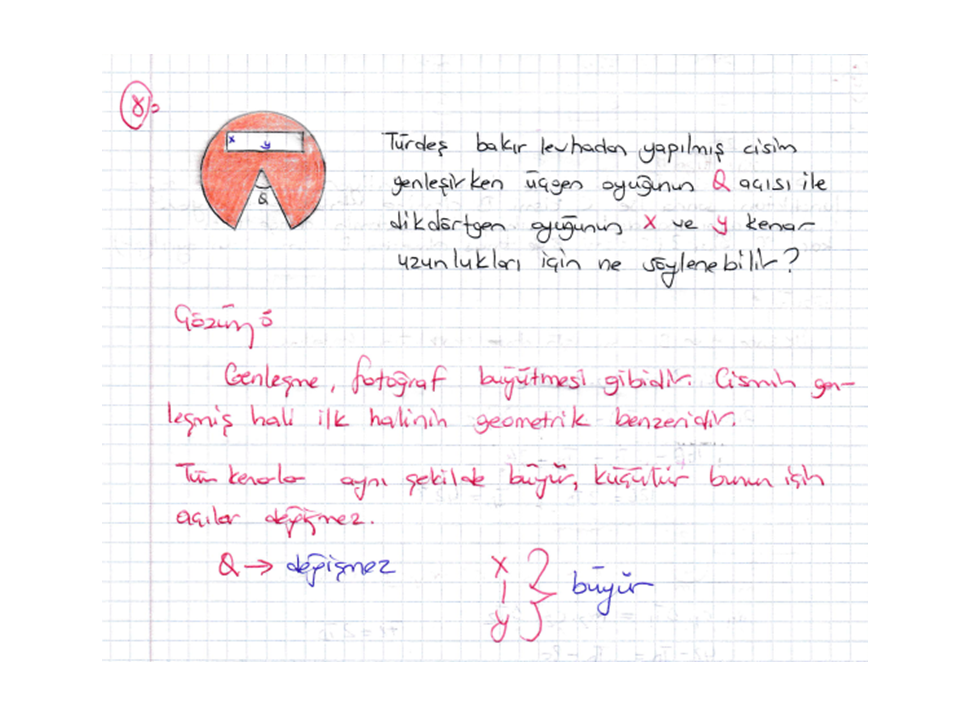 8)
x
y
Q
Türdeş bakır levhadan yapılmış cisim
genleşirken üçgen oyuğunun Q açısı ile
dikdörtgen oyuğunun x ve y kenar
uzunlukları için ne söylenebilir?
Çözüm:
Genleşme, fotoğraf büyütmesi gibidir. Cismin gen-
leşmiş hali ilk halinin geometrik benzeridir.
Tüm kenarlar aynı şekilde büyür, küçülür bunun için
açılar değişmez.
Q → değişmez
x
,
y
büyür